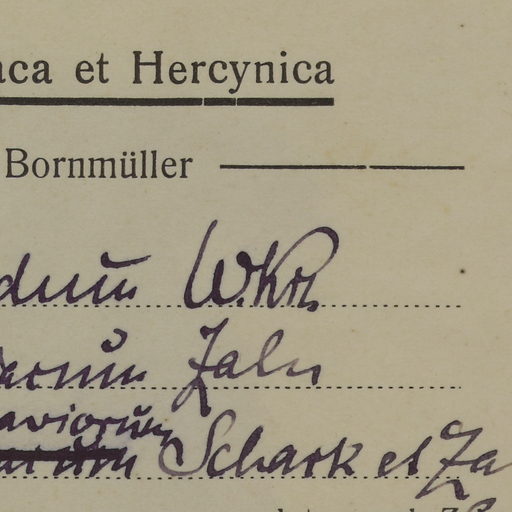 aca et Hercynica
Bornmüller
dum W.Kit.
arum Zahn
aviorum
Schark et Za